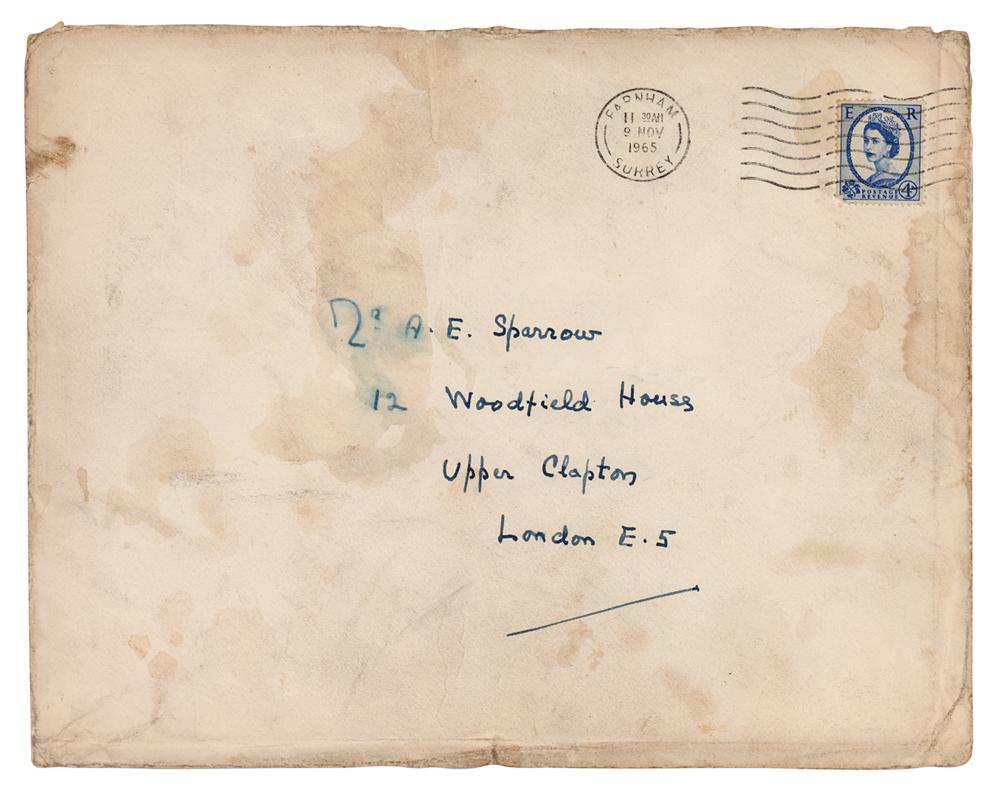 FARNHAM
11 30 AM
9 NOV
1965
SURREY
E R
POSTAGE
REVENUE
4D
A. E. Sparrow
12 Woodfield House
Upper Clapton
London E.5